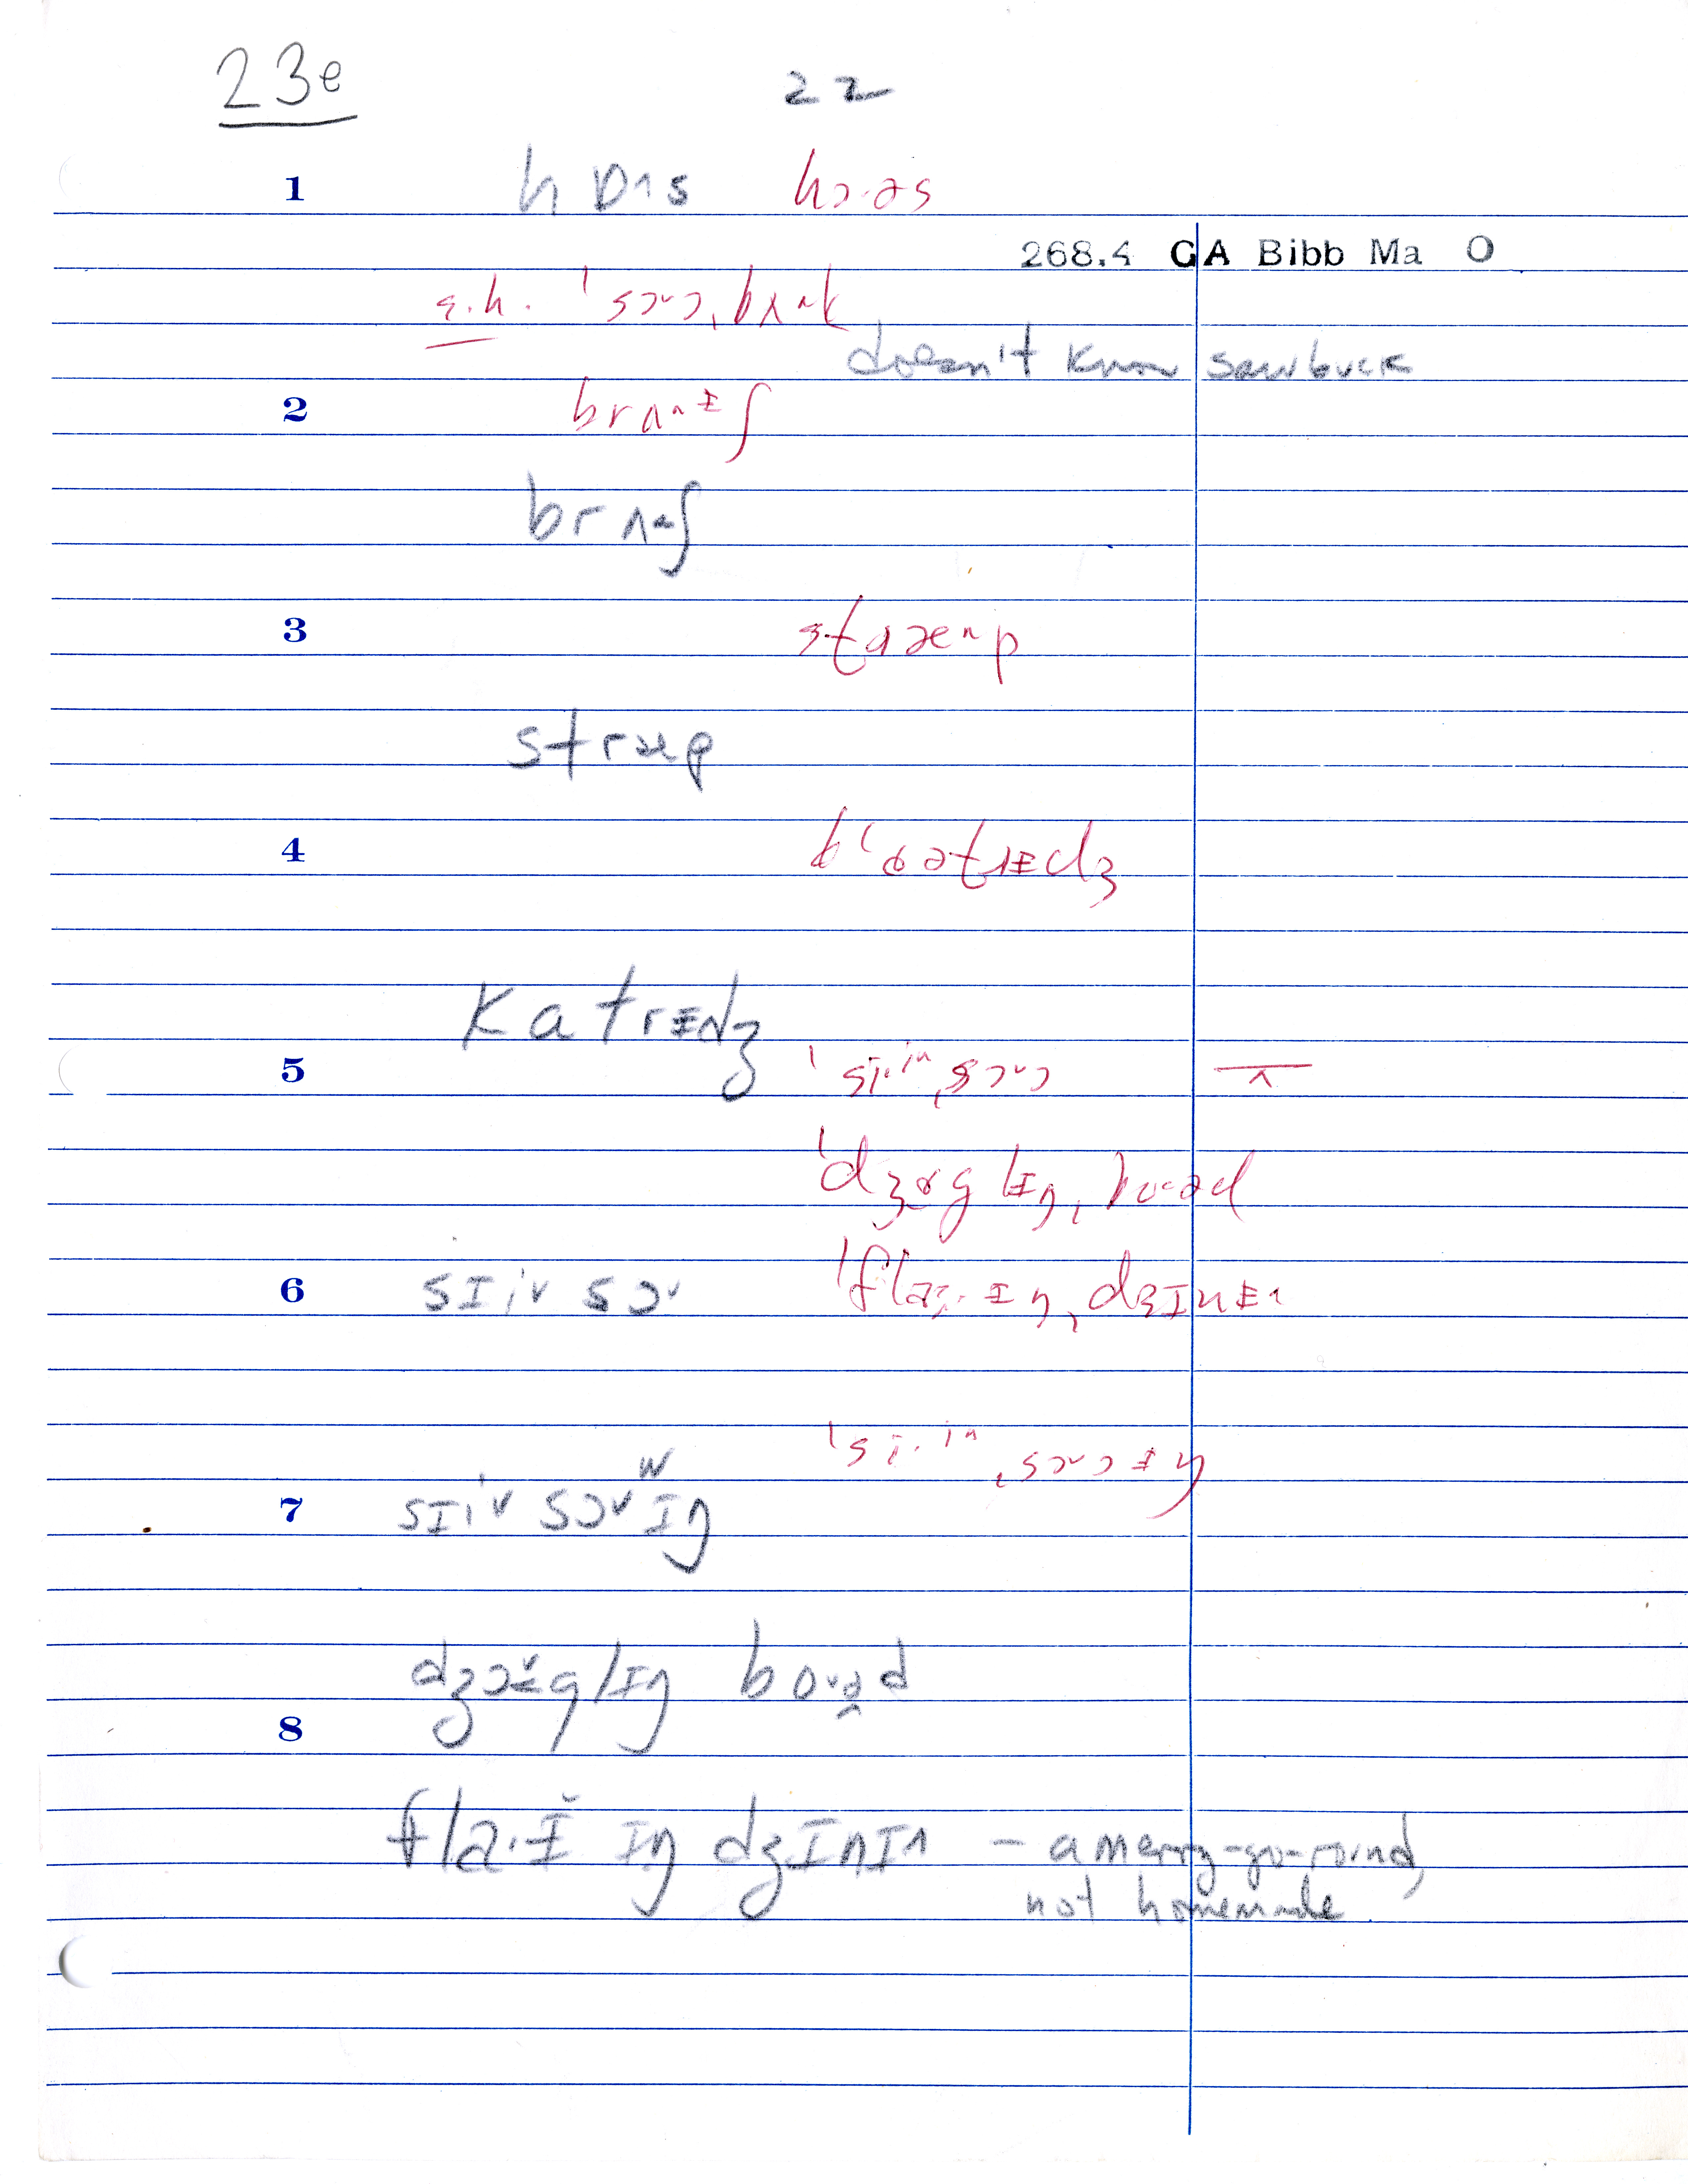 23e 22
1 hɒ˄s hɔ·əs
268.4 GA Bibb Ma O
s.h. ˈsɔᵛɔ,bʌ
doesn't know sawbuck
2 brʌ^ᵻʃ
brʌ^ʃ
3 stæ^p
stræp
4
katrᵻdʒ
5 ˈsi·i^,sɔᵛɔ
ˈdʒɤglᵻŋ,bo·əd
6 sɪiᵛ sɔᵛ ˈfla·ᵻŋ,dʒɪnᵻ
ˈsi·i^,sɔᵛɔᵻŋ
w
7 sɪiᵛ sɔᵛɪŋ
dʒɔglɪŋ boᵛəd
8
fla·ɪ̆ ɪŋ dʒɪnɪ˄ – a merry-go-round,
not homemade